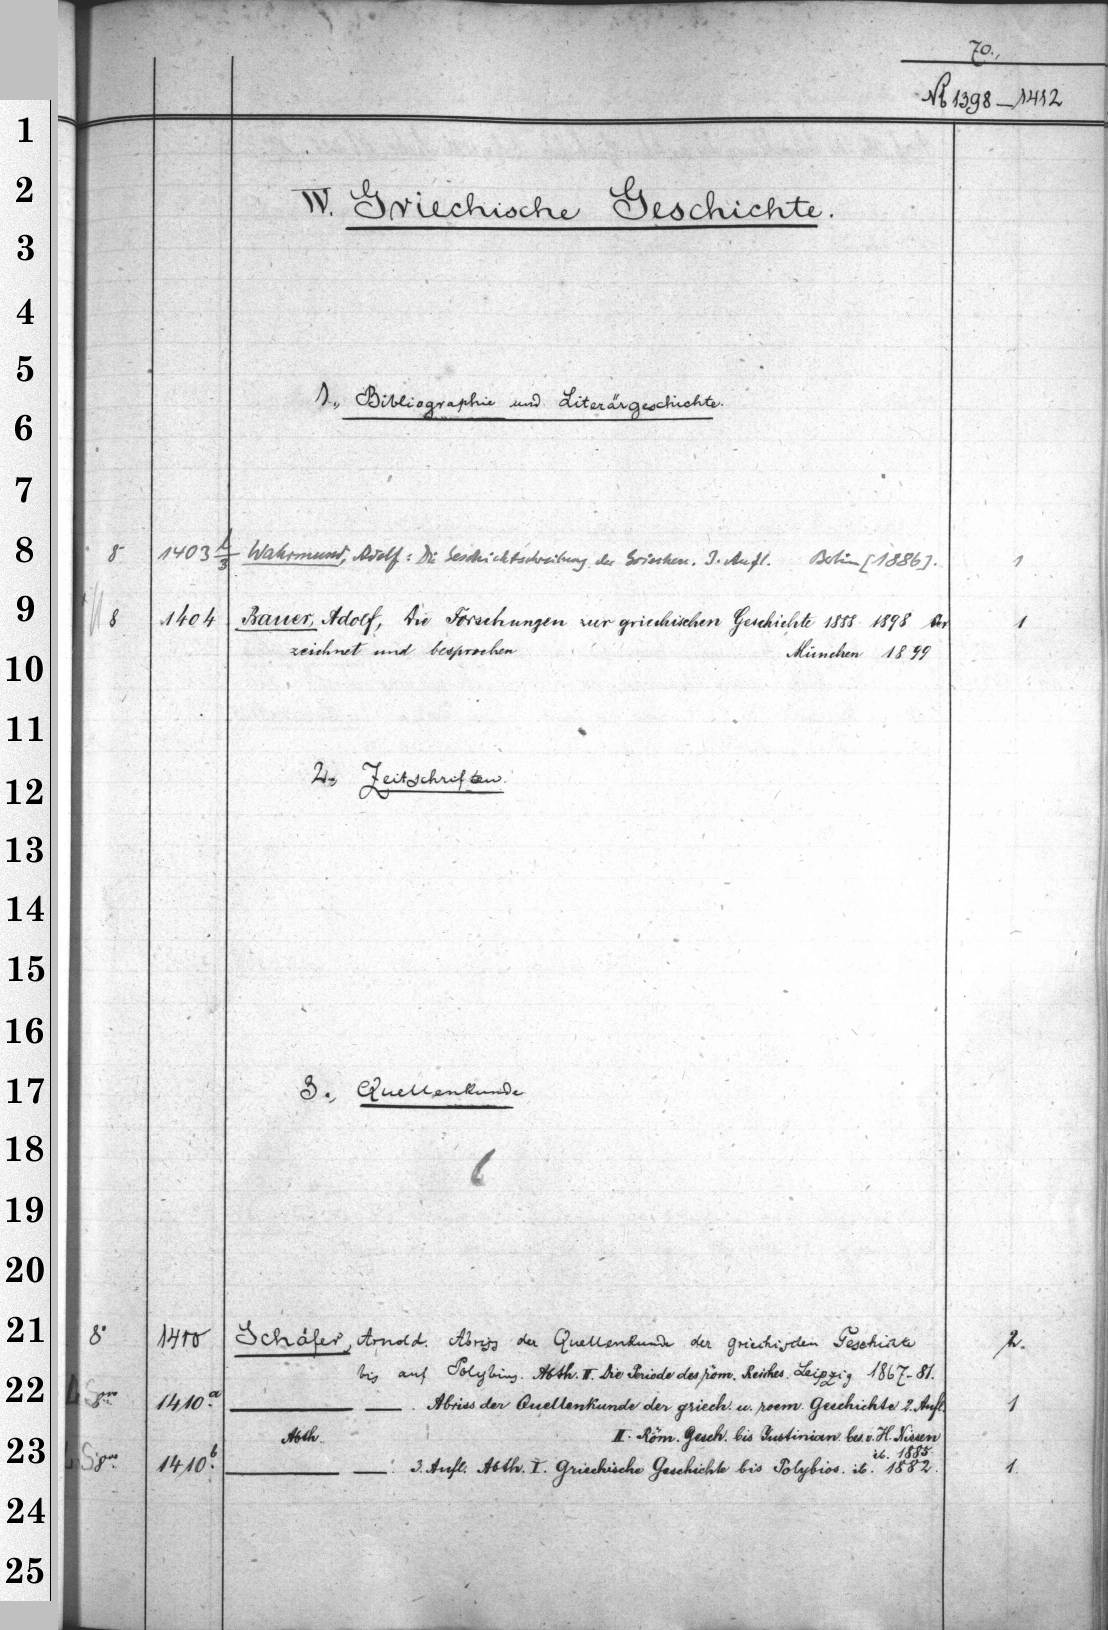 70.,
№ 1398_1412
1
2
IV. Griechische Geschichte.
3
4
5
1., Bibliographie und Literärgeschichte.
6
7
8
8 1403 1/3 Wahrmund, Adolf: Die Geschichtschreibung der Griechen. 3. Aufl. Berlin [1886]. 1
9
8 1404 Bauer, Adolf, Die Forschungen zur griechischen Geschichte 1888 1898 ver 1
zeichnet und besprochen München 1899
10
11
12
2., Zeitschriften.
13
14
15
16
17
3., Quellenkunde
18
19
20
21
8° 1410 Schäfer, Arnold. Abriss der Quellenkunde der griechischen Geschichte 2.
bis auf Polybius. Abth. II. Die Periode des röm. Reiches. Leipzig 1867-81.
22
1410.a — — . Abriss der Quellenkunde der griech. u. roem. Geschichte 2. Aufl. 1
Abth. II. Röm. Gesch. bis Justinian bes. v. H. Nissen
ib. 1885.
23
1410.b — — . 3. Aufl. Abth. I. Griechische Geschichte bis Polybios. ib. 1882. 1
24
25